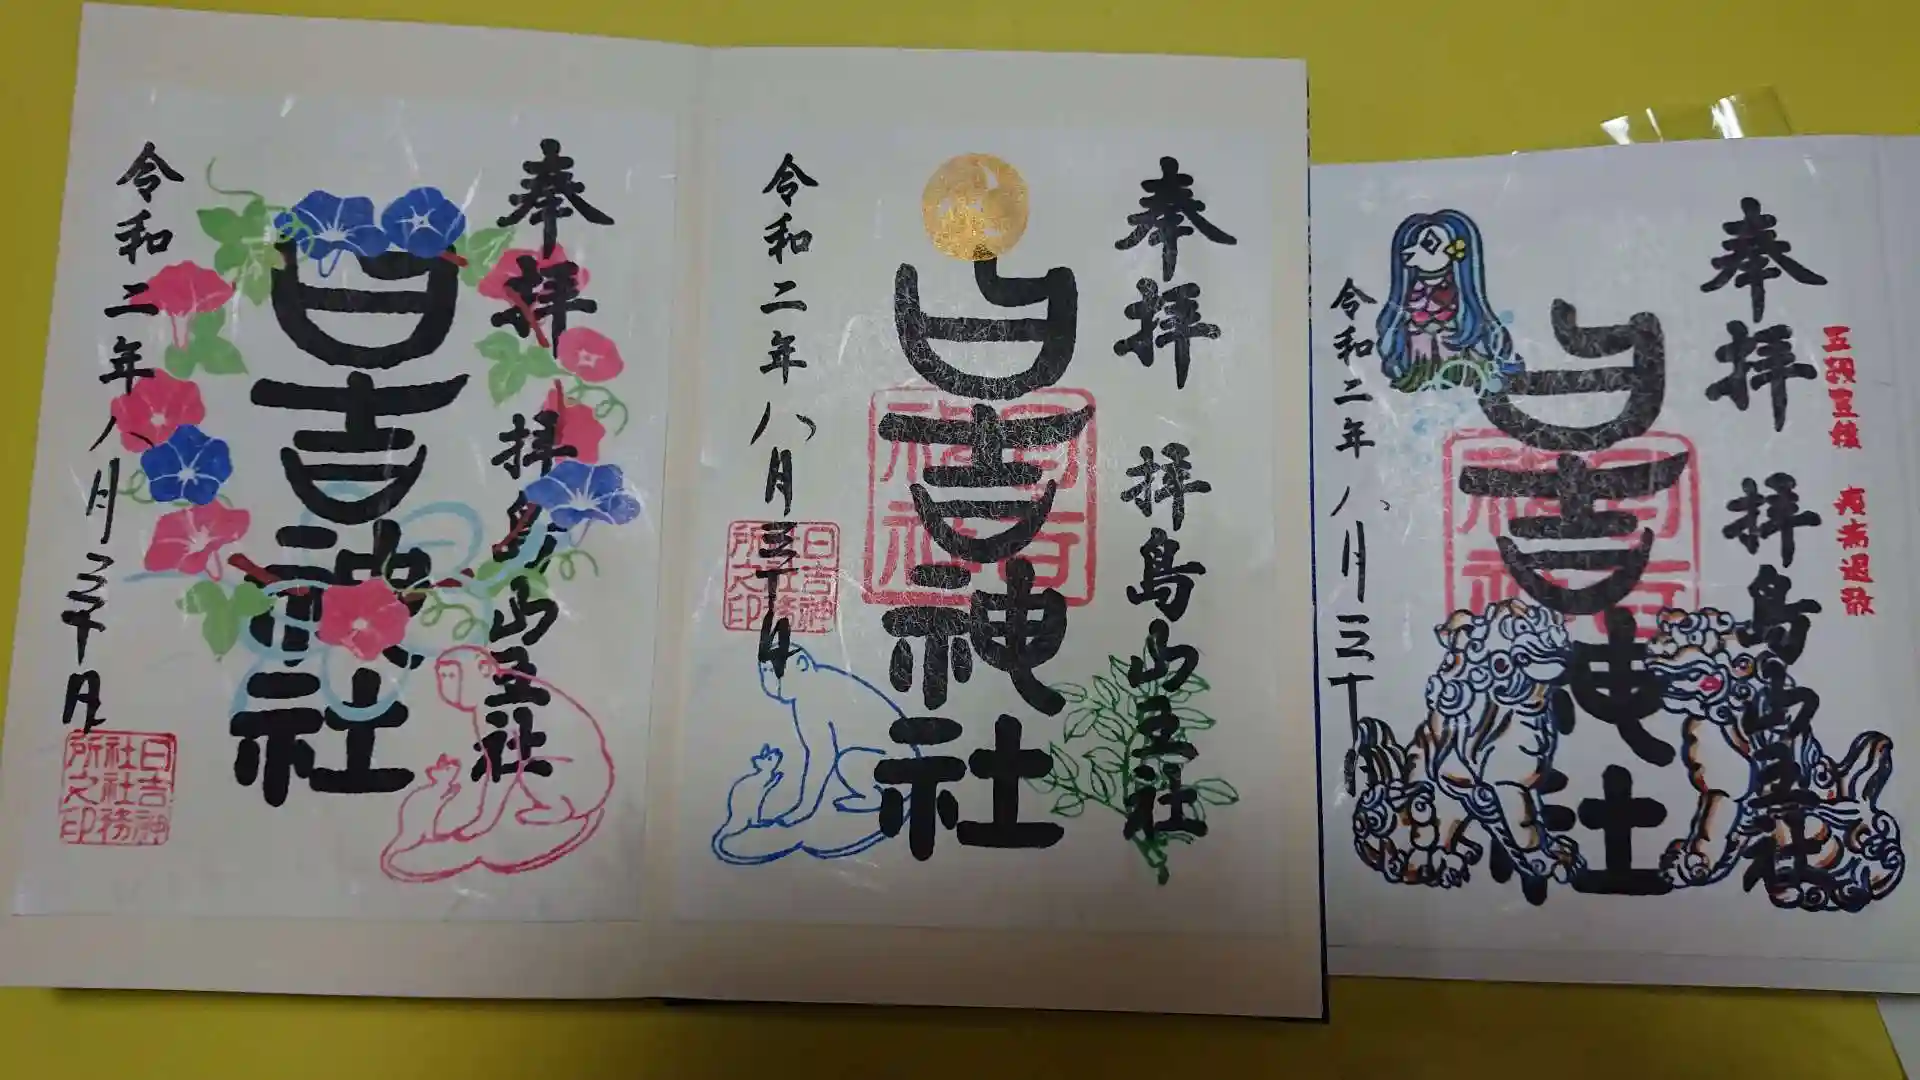 奉拝 拝島山王社
日吉神社
令和二年八月三十日
日吉神
社社務
所之印
奉拝 拝島山王社
日吉神社
令和二年八月三十日
日吉神
社社務
所之印
五穀豊穣 疫病退散
奉拝 拝島山王社
日吉神社
令和二年八月三十日